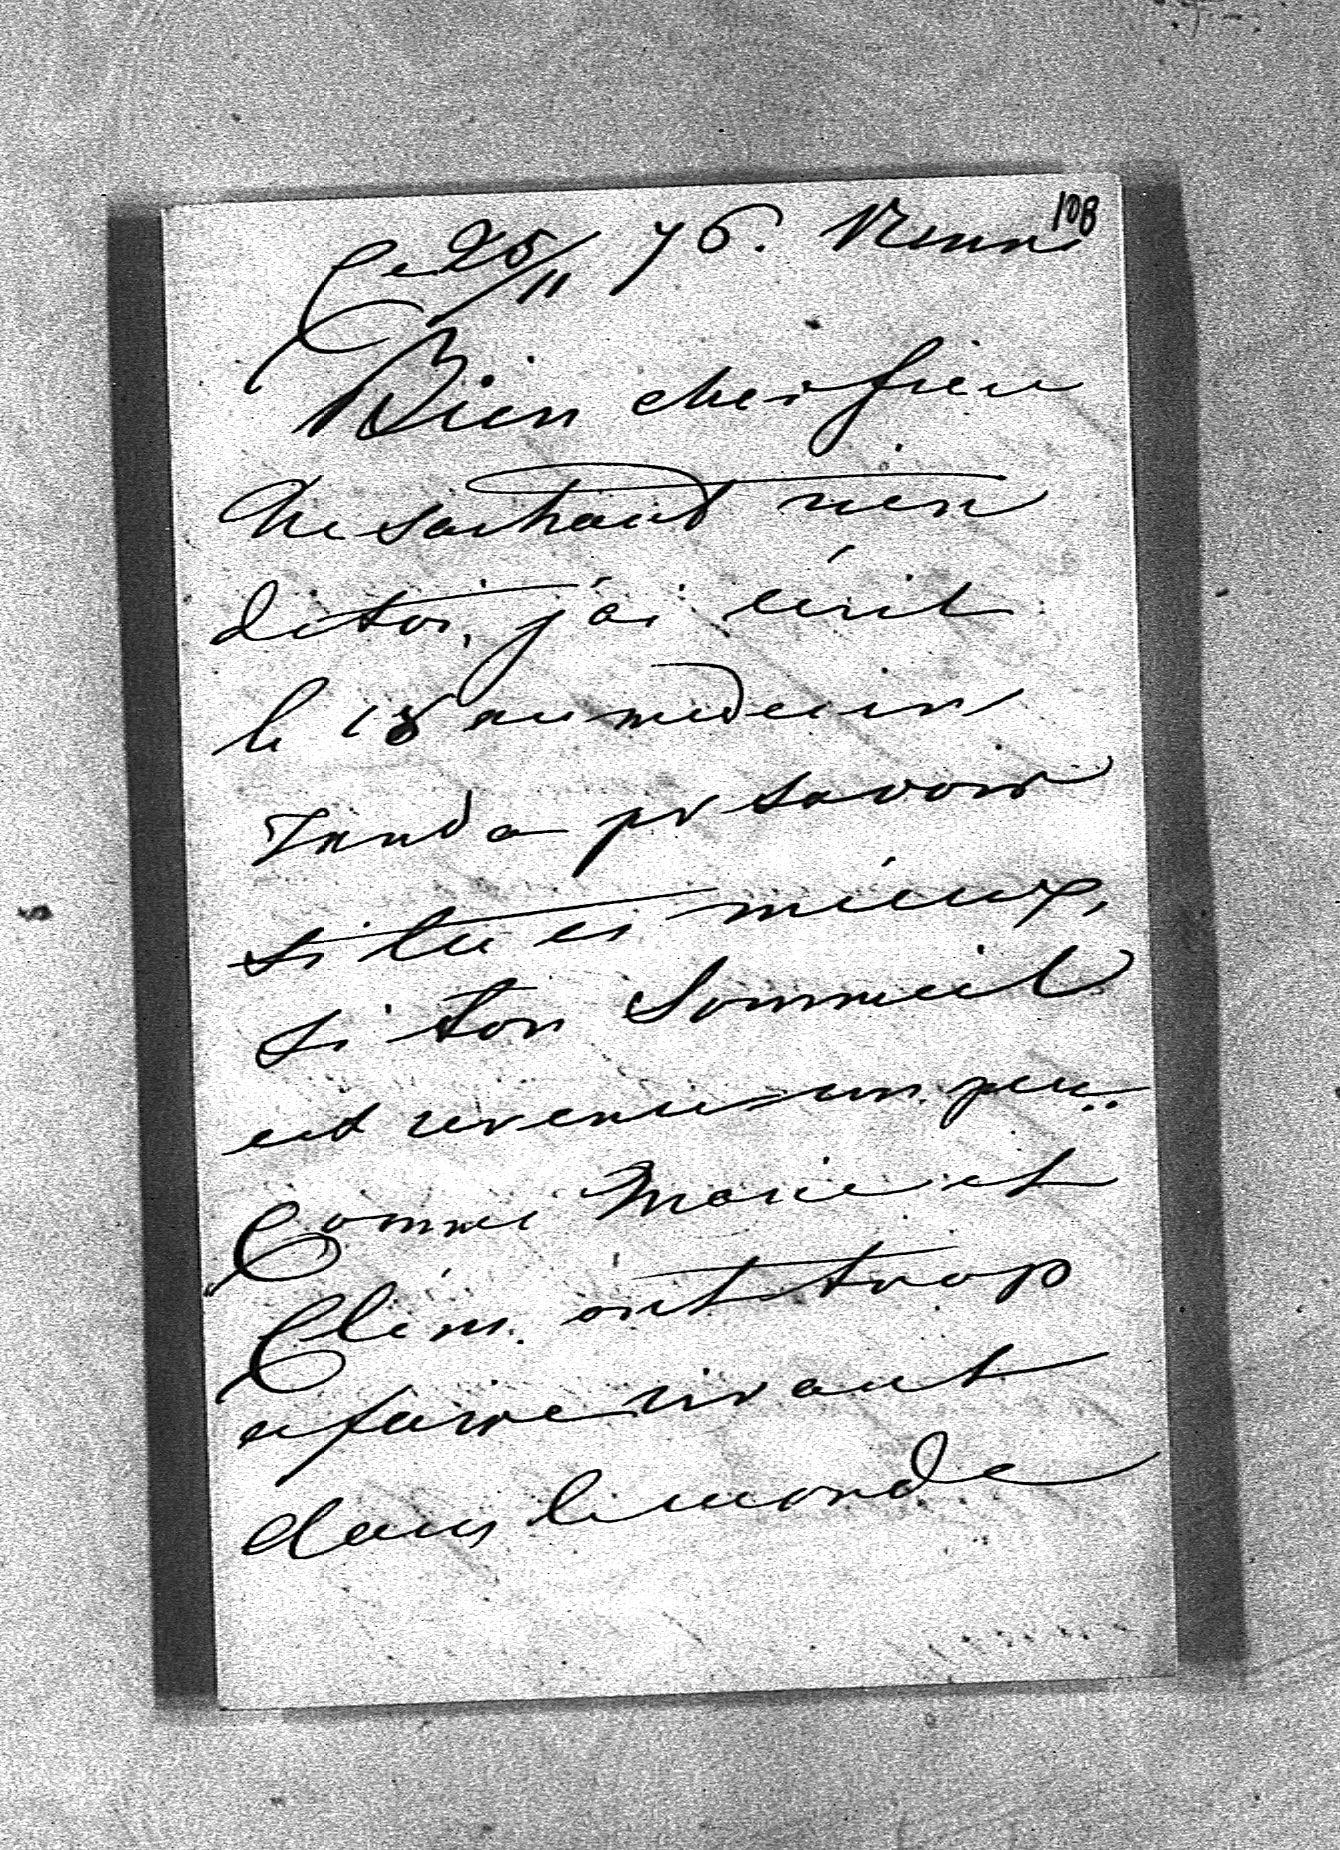 108
Ce 25/11 76.
Bien cher frère
Ne sachant rien
de toi, j'ai écrit
le 18 au medecin
pr savoir
si tu es mieux,
si ton sommeil
est revenu un peu..
Comme Marie et
Clém. ont trop
a faire vivant
dans le monde